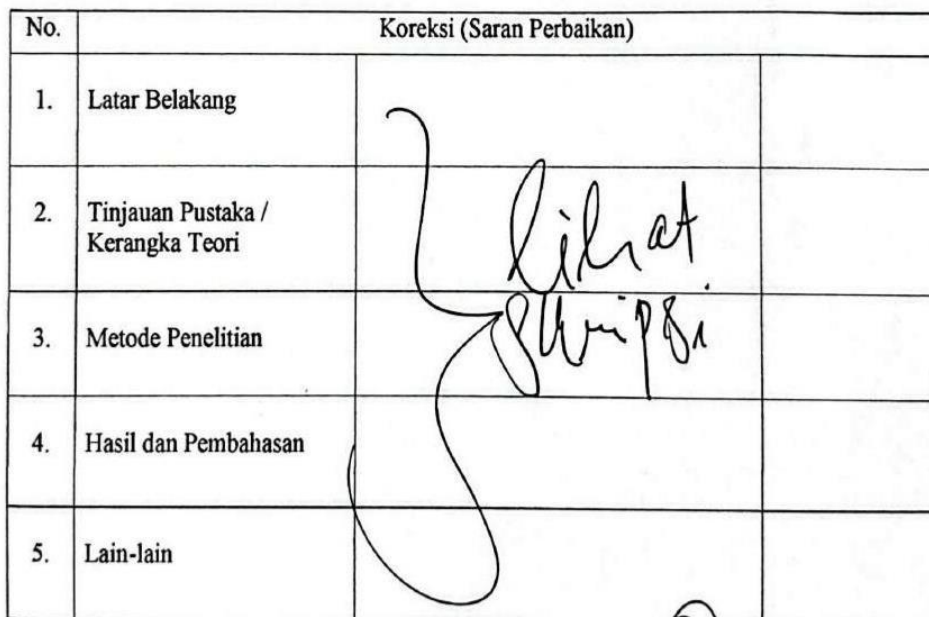 No. Koreksi (Saran Perbaikan)
1. Latar Belakang
2. Tinjauan Pustaka /
Kerangka Teori
lihat
skripsi
3. Metode Penelitian
4. Hasil dan Pembahasan
5. Lain-lain